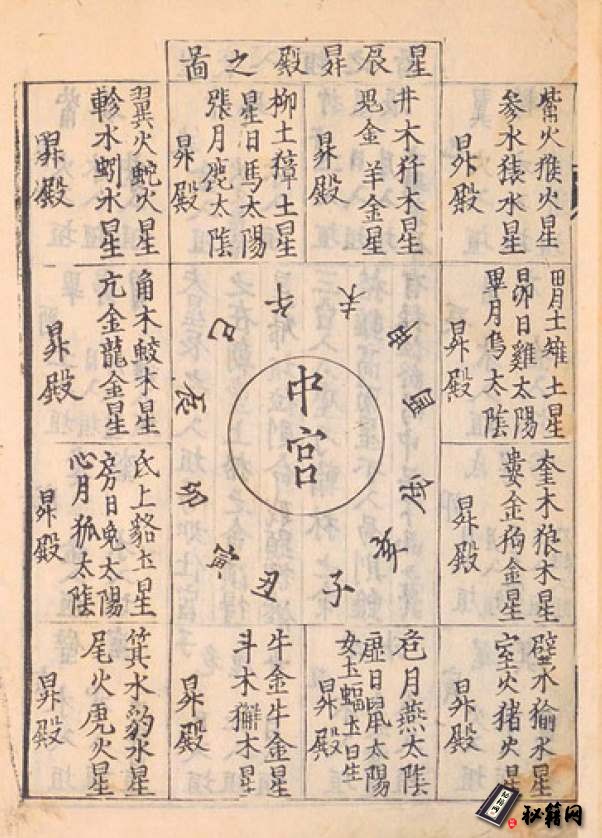 星辰昇殿之啚
觜火猴火星
參水猿水星
昇殿
井木犴木星
鬼金羊金星
昇殿
柳土獐土星
星日馬太陽
張月鹿太陰
昇殿
翼火蛇火星
軫水蚓水星
昇殿
胃土雉土星
昴日雞太陽
畢月烏太陰
昇殿
角木蛟木星
亢金龍金星
昇殿
奎木狼木星
婁金狗金星
昇殿
氐土貉土星
房日兔太陽
心月狐太陰
昇殿
壁水㺄水星
室火猪火星
昇殿
危月燕太陰
虛日鼠太陽
女土蝠土星
昇殿
牛金牛金星
斗木獬木星
昇殿
箕水豹水星
尾火虎火星
昇殿
中宮
子丑寅卯辰巳午未申酉戌亥
秘籍网